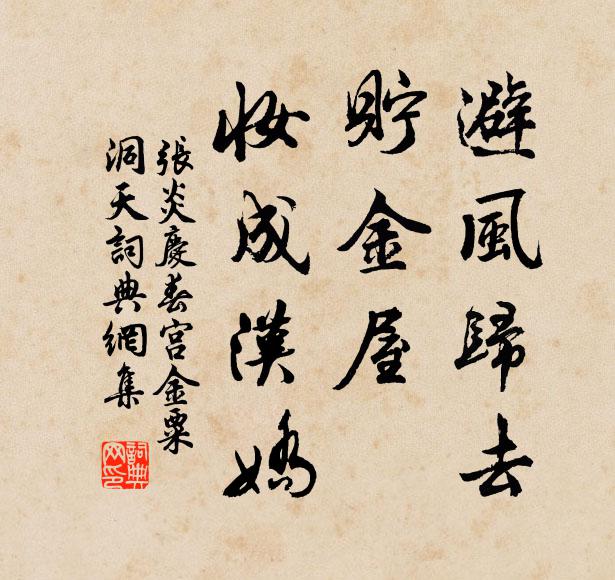 避風歸去
貯金屋
妝成漢嬌
張炎慶春宮金粟
洞天詞典網集
詞典网印